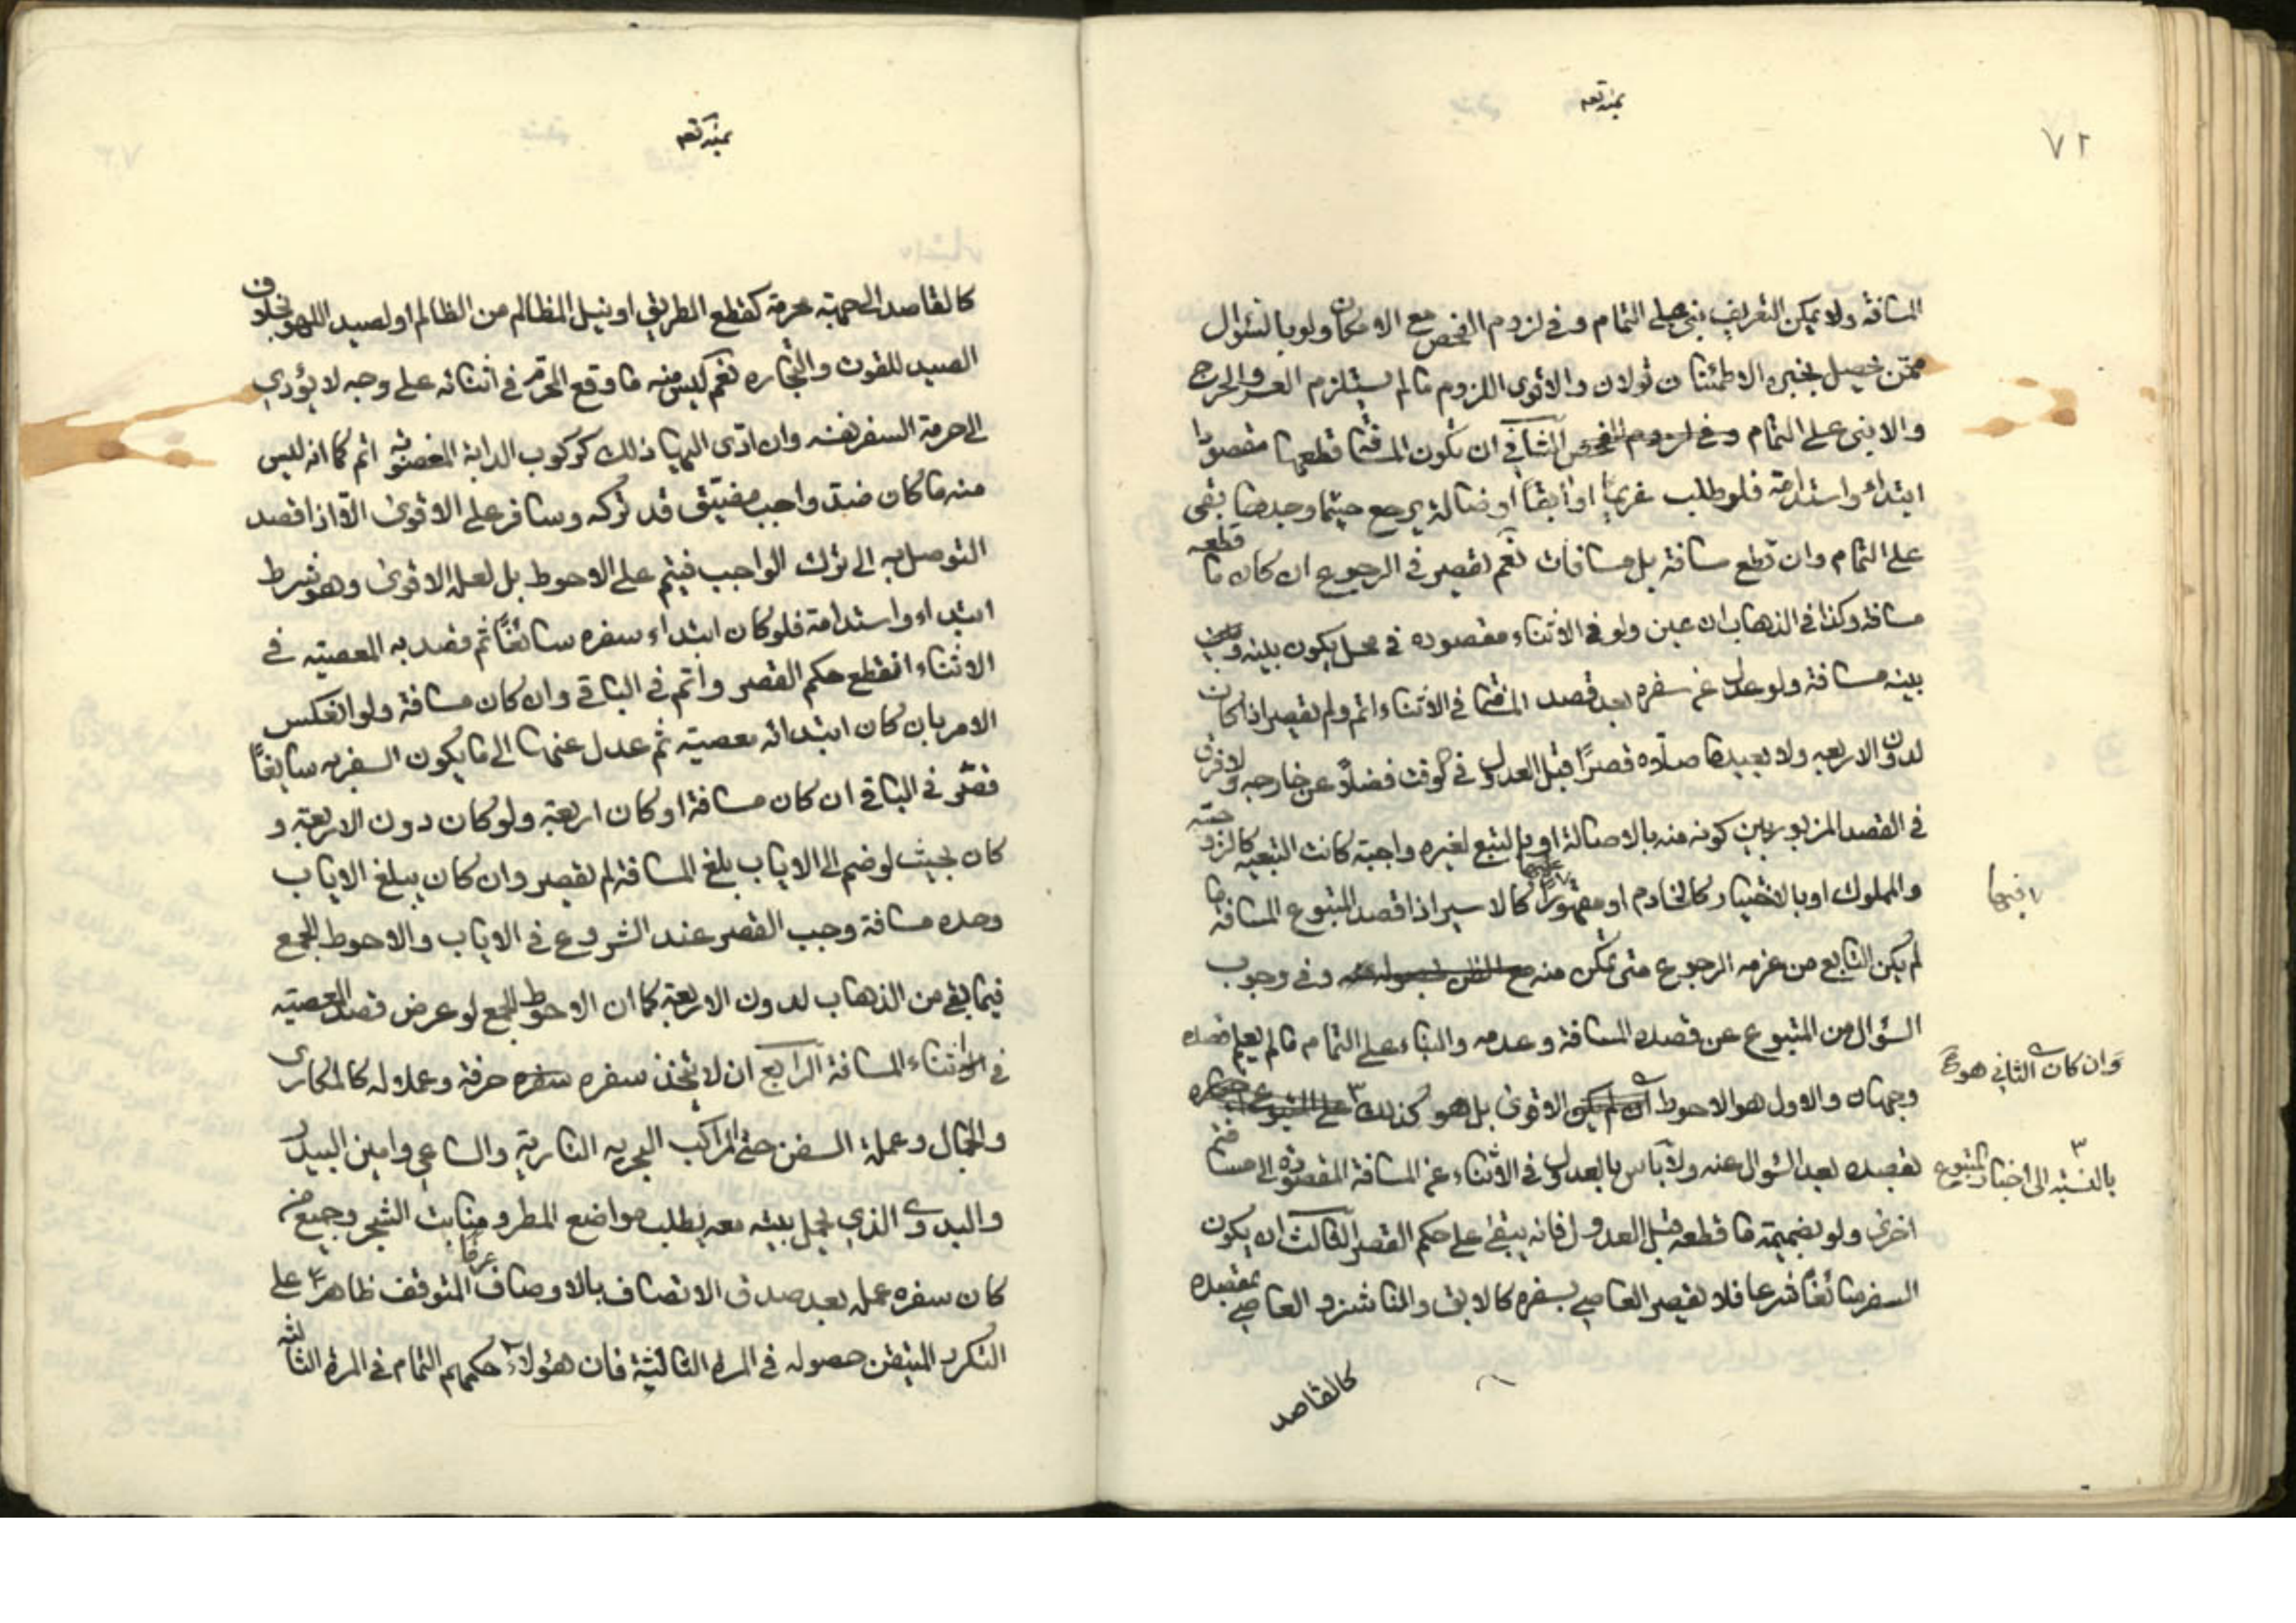 ٧٢
المسافة ولا يمكن التقريب بنى على التمام وفي لزوم الفحص مع الامكان ولو بالسؤال
ممن يحصل بخبره الاطمئنان قولان والاقوى اللزوم ما لم يستلزم العسر والحرج
والا بنى على التمام وفي لزوم الفحص الثاني ان يكون المسافة قطعها مقصودا
ابتداء واستدامة فلو طلب غريما او آبقا او ضالة يرجع حيثما وجدها بقى
على التمام وان قطع مسافة بل مسافات نعم يقصر في الرجوع ان كان ما قطعه
مسافة وكذا في الذهاب ان عين ولو في الاثناء مقصوده في محل يكون بينه وبين
بينه مسافة ولو عدل عن سفره بعد قصد المسافة في الاثناء اتم ولم يقصر اذا كان
لدون الاربعة ولا يعيد ما صلاه قصرًا قبل العدول في الوقت فضلًا عن خارجه ولا فرق
في القصد المزبور بين كونه منه بالاصالة او بالتبع لغيره واجبة كانت التبعية كالزوجة
والمملوك او بالاختيار كالخادم او مقهورًا عليها كالاسير اذا قصد المتبوع المسافة ما
لم يكن التابع من عزمه الرجوع متى تمكن منه مع الظن بحصوله وفي وجوب
السؤال من المتبوع عن قصده المسافة وعدمه والبناء على التمام ما لم يعلم قصده
وجهان والاول هو الاحوط ان لم يكن الاقوى بل هو كذلك ٣ على المتبوع
بقصده بعد السؤال عنه ولا بأس بالعدول في الاثناء عن المسافة المقصودة الى مسافة
اخرى ولو بضميمة ما قطعه قبل العدول فانه يبقى على حكم القصر الثالث ان يكون
السفر سائغًا شرعا فلا يقصر العاصي بسفره كالابق والناشز و العاصي بمقصده
كالقاصد
فيها
وان كان الثاني هو
٣
بالنسبة الى اخبار المتبوع
كالقاصد الى جهة محرمة كقطع الطريق او نيل المظالم من الظالم او لصيد اللهو بخلاف
الصيد للقوت والتجارة نعم ليس منه ما وقع المحرم في اثنائه على وجه لا يؤدي
الى حرمة السفر نفسه وان ادى اليها ذلك كركوب الدابة المغصوبة اتم كما انه ليس
منه ما كان ضد واجب مضيق قد تركه وسافر على الاقوى الا اذا قصد
التوصل به الى ترك الواجب فيتم على الاحوط بل لعله الاقوى وهو شرط
ابتداء واستدامة فلو كان ابتداء سفره سائغًا ثم قصد به المعصية في
الاثناء انقطع حكم القصر واتم في الباقي وان كان مسافة ولو انعكس
الامر بان كان ابتدائه معصية ثم عدل عنها الى ما يكون السفر به سايغًا
قصّر في الباقي ان كان مسافة او كان اربعة ولو كان دون الاربعة و
كان بحيث لو ضم الى الاياب بلغ المسافة لم يقصر وان كان يبلغ الاياب
وحده مسافة وجب القصر عند الشروع في الاياب والاحوط الجمع
فيما بقي من الذهاب لدون الاربعة كما ان الاحوط الجمع لو عرض قصد المعصية
في اثناء المسافة الرابع ان لا يتخذ سفره سفره حرفة وعملا له كالمكاري
والجمال وعملة السفن حتى المراكب البحرية النارية والساعي وامين البيدر
والبدوي الذي يحمل بيته معه يطلب مواضع المطر ومنابت الشجر وجميع من
كان سفره عمله بعد صدق الاتصاف بالاوصاف عرفًا المتوقف ظاهرًا على
التكرر المتيقن حصوله في المرة الثالثة فان هؤلاء حكمهم التمام في المرة الثالثة